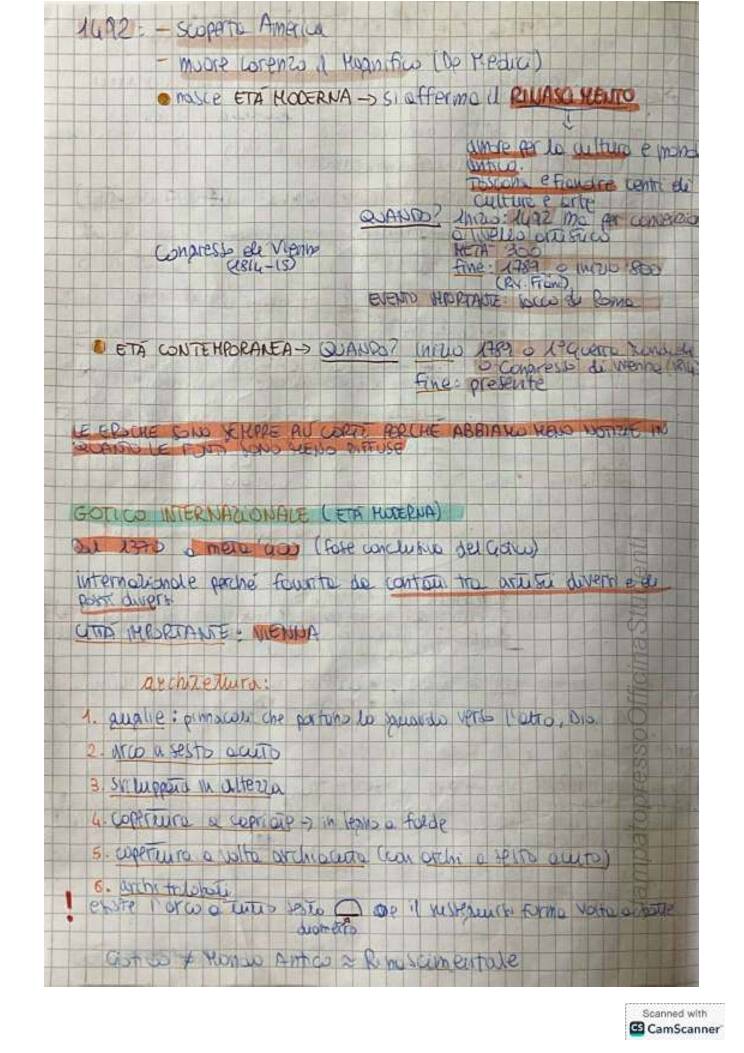 1492: - scoperta America
- muore Lorenzo il Magnifico (De Medici)
• nasce ETÁ MODERNA → si afferma il RINASCIMENTO
↓
amore per la cultura e mond
antico.
Toscana e fiandre centri di
culture e arte
QUANDO? inizio: 1492 ma per
a livello artistico
METÀ 300
fine: 1789 o inizio '800
(Rv. Franc)
Congresso di Vienna
(1814-15)
EVENTO IMPORTANTE: sacco di Roma
• ETÁ CONTEMPORANEA → QUANDO? inizio 1789 o 1° Guerra
o Congresso di Vienna (1814
fine: presente
LE EPOCHE SONO SEMPRE PIÙ CORTE PERCHÉ ABBIAMO MENO NOTIZIE IN
QUANTO LE FONTI SONO MENO DIFFUSE
GOTICO INTERNAZIONALE (ETÁ MODERNA)
Dal 1370 a metà '400 (fase conclusiva del Gotico)
internazionale perché fourita da contatti tra artisti diversi e di
posti diversi
CITTÀ IMPORTANTE: VIENNA
architettura:
1. guglie: pinnacoli che portano lo sguardo verso l'alto, Dio.
2. arco a sesto acuto
3. sviluppata in altezza
4. copertura a capriate → in legno a falde
5. copertura a volta archiacuta (con archi a sesto acuto)
6. archi trilobati
! esiste l'arco a tutto sesto che il forma volta a botte
diametro
Gotico ≠ Mondo Antico ≈ Rinascimentale
StampatopressoOfficinaStudenti
Scanned with
CS CamScanner